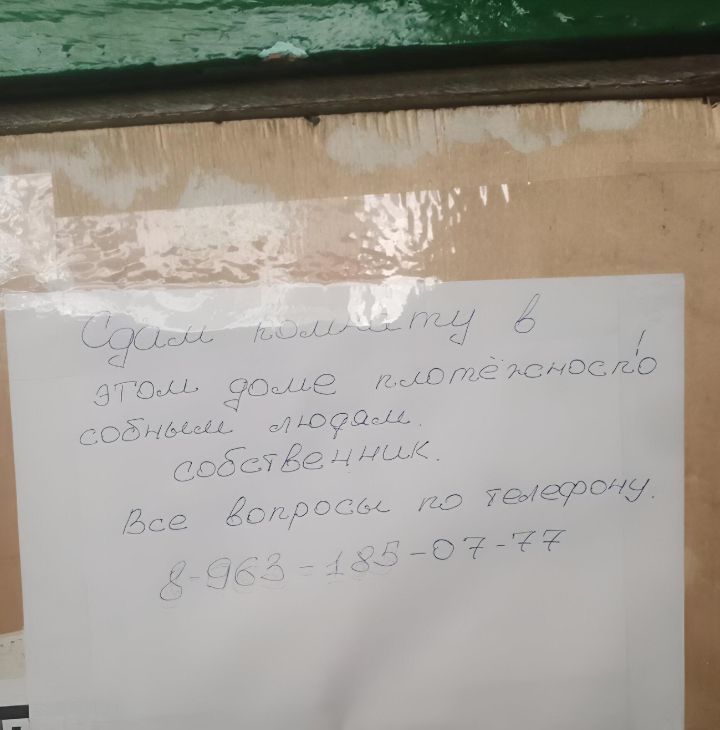 Сдам комнату в
этом домеплотёжноспо!
собным людям.
собственник.
Все вопросы по телефону.
8-963-185-07-77